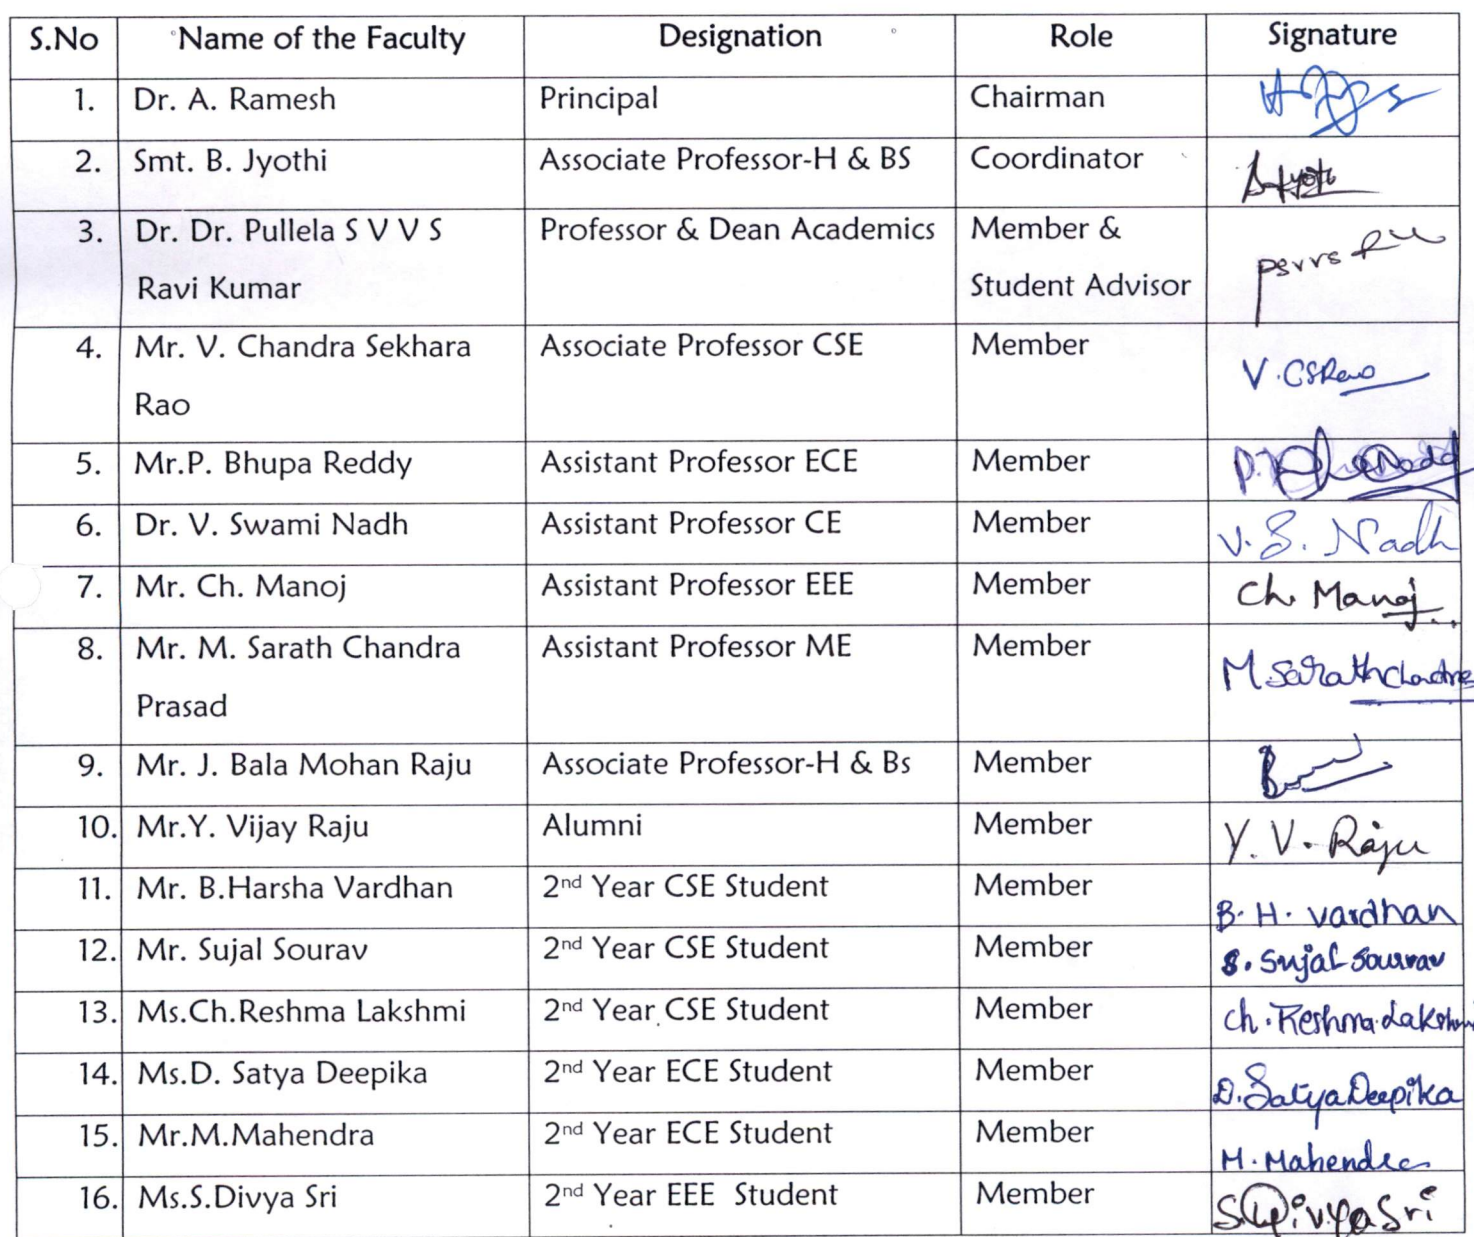 S.No Name of the Faculty Designation Role Signature
1. Dr. A. Ramesh Principal Chairman
2. Smt. B. Jyothi Associate Professor-H & BS Coordinator B Jyothi
3. Dr. Dr. Pullela S V V S Professor & Dean Academics Member &
Ravi Kumar Student Advisor psvvs
4. Mr. V. Chandra Sekhara Associate Professor CSE Member V.CSRao
Rao
5. Mr.P. Bhupa Reddy Assistant Professor ECE Member
6. Dr. V. Swami Nadh Assistant Professor CE Member V. S. Nadh
7. Mr. Ch. Manoj Assistant Professor EEE Member Ch. Manoj
8. Mr. M. Sarath Chandra Assistant Professor ME Member M Sarathchandra
Prasad
9. Mr. J. Bala Mohan Raju Associate Professor-H & Bs Member
10. Mr.Y. Vijay Raju Alumni Member Y. V. Raju
11. Mr. B.Harsha Vardhan 2nd Year CSE Student Member B. H. vardhan
12. Mr. Sujal Sourav 2nd Year CSE Student Member S. Sujal Sourav
13. Ms.Ch.Reshma Lakshmi 2nd Year CSE Student Member Ch. Reshma Lakshmi
14. Ms.D. Satya Deepika 2nd Year ECE Student Member D. Satya Deepika
15. Mr.M.Mahendra 2nd Year ECE Student Member M. Mahendra
16. Ms.S.Divya Sri 2nd Year EEE Student Member S. Divya Sri